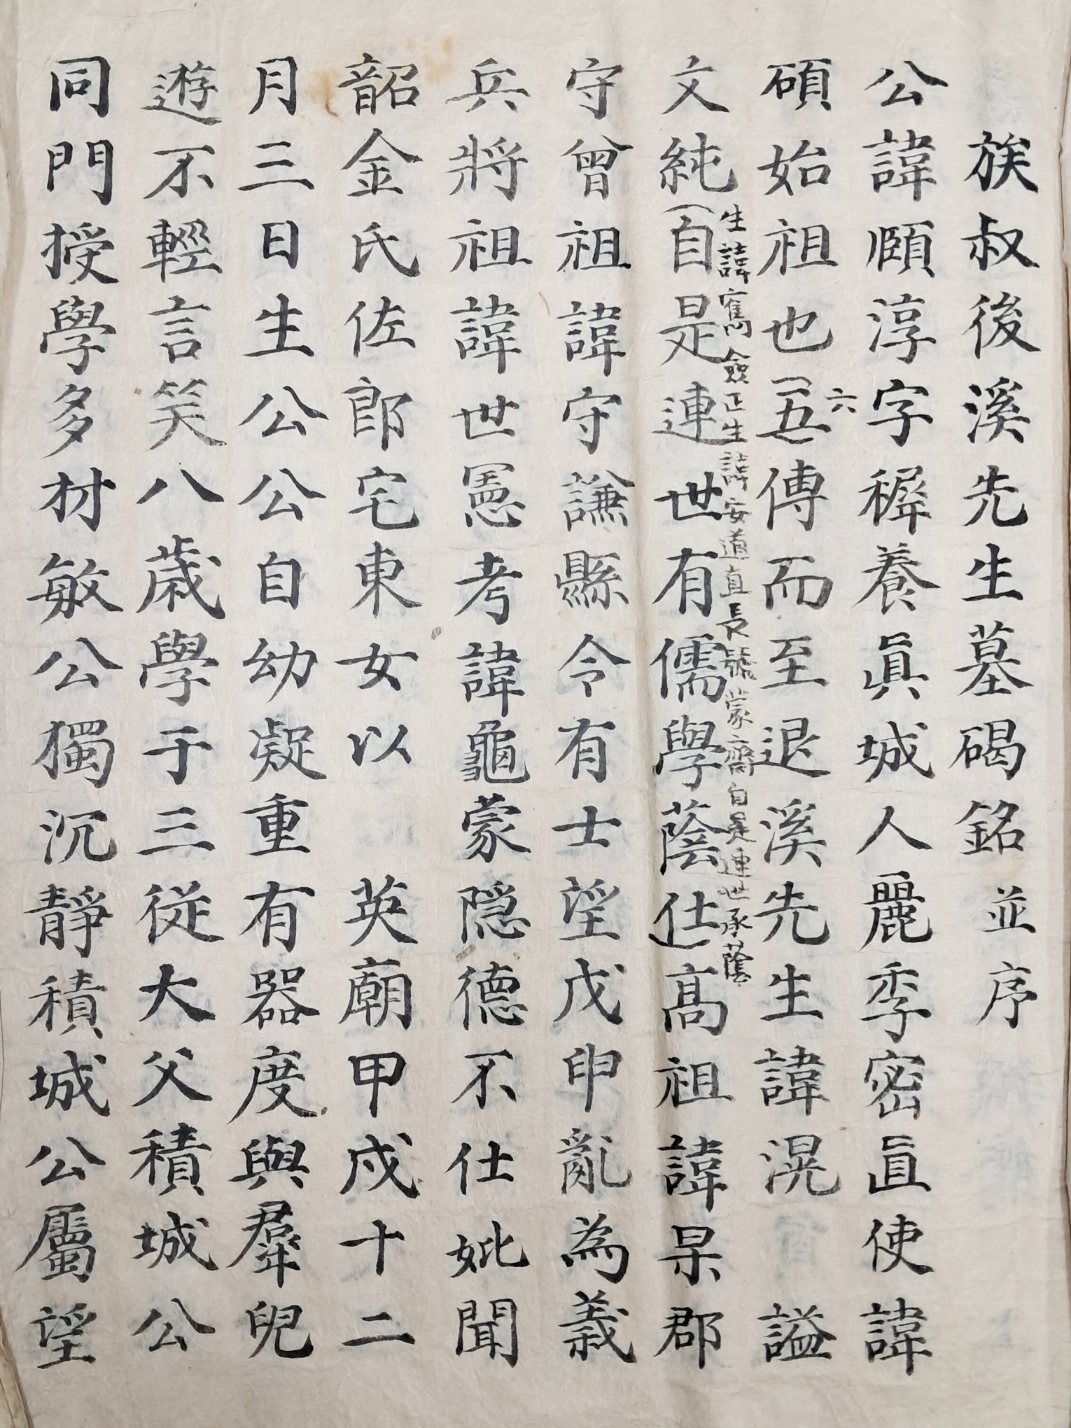 族叔後溪先生墓碣銘 並序
公諱頤淳字穉養眞城人麗季密直使諱
碩始祖也五傳而至退溪先生諱滉 謚
六
文純自是連世有儒學蔭仕高祖諱杲郡
生諱寯僉正生諱安道直長號蒙齋自是連世承蔭
守曾祖諱守謙縣令有士望戊申亂為義
兵將祖諱世憲考諱龜蒙隐德不仕妣聞
韶金氏佐郎宅東女以 英廟甲戌十二
月三日生公公自幼凝重有器度與羣兒
遊不輕言笑八歲學于三從大父積城公
同門授學多材敏公獨沉靜積城公屬望